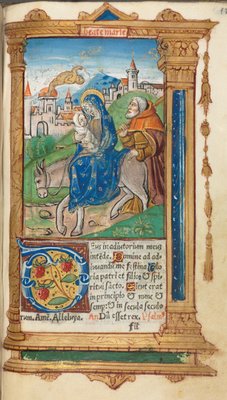 beate marie
us in adiutorium meū
intēde. Domine ad ad
iuuandū me festina. Glo
ria patri et filio & spi
ritui sācto. Sicut erat
in principio & nunc &
semp: & in secula seculo
rum. Amē. Alleluya. An Dū esset rex. Psalm⁹